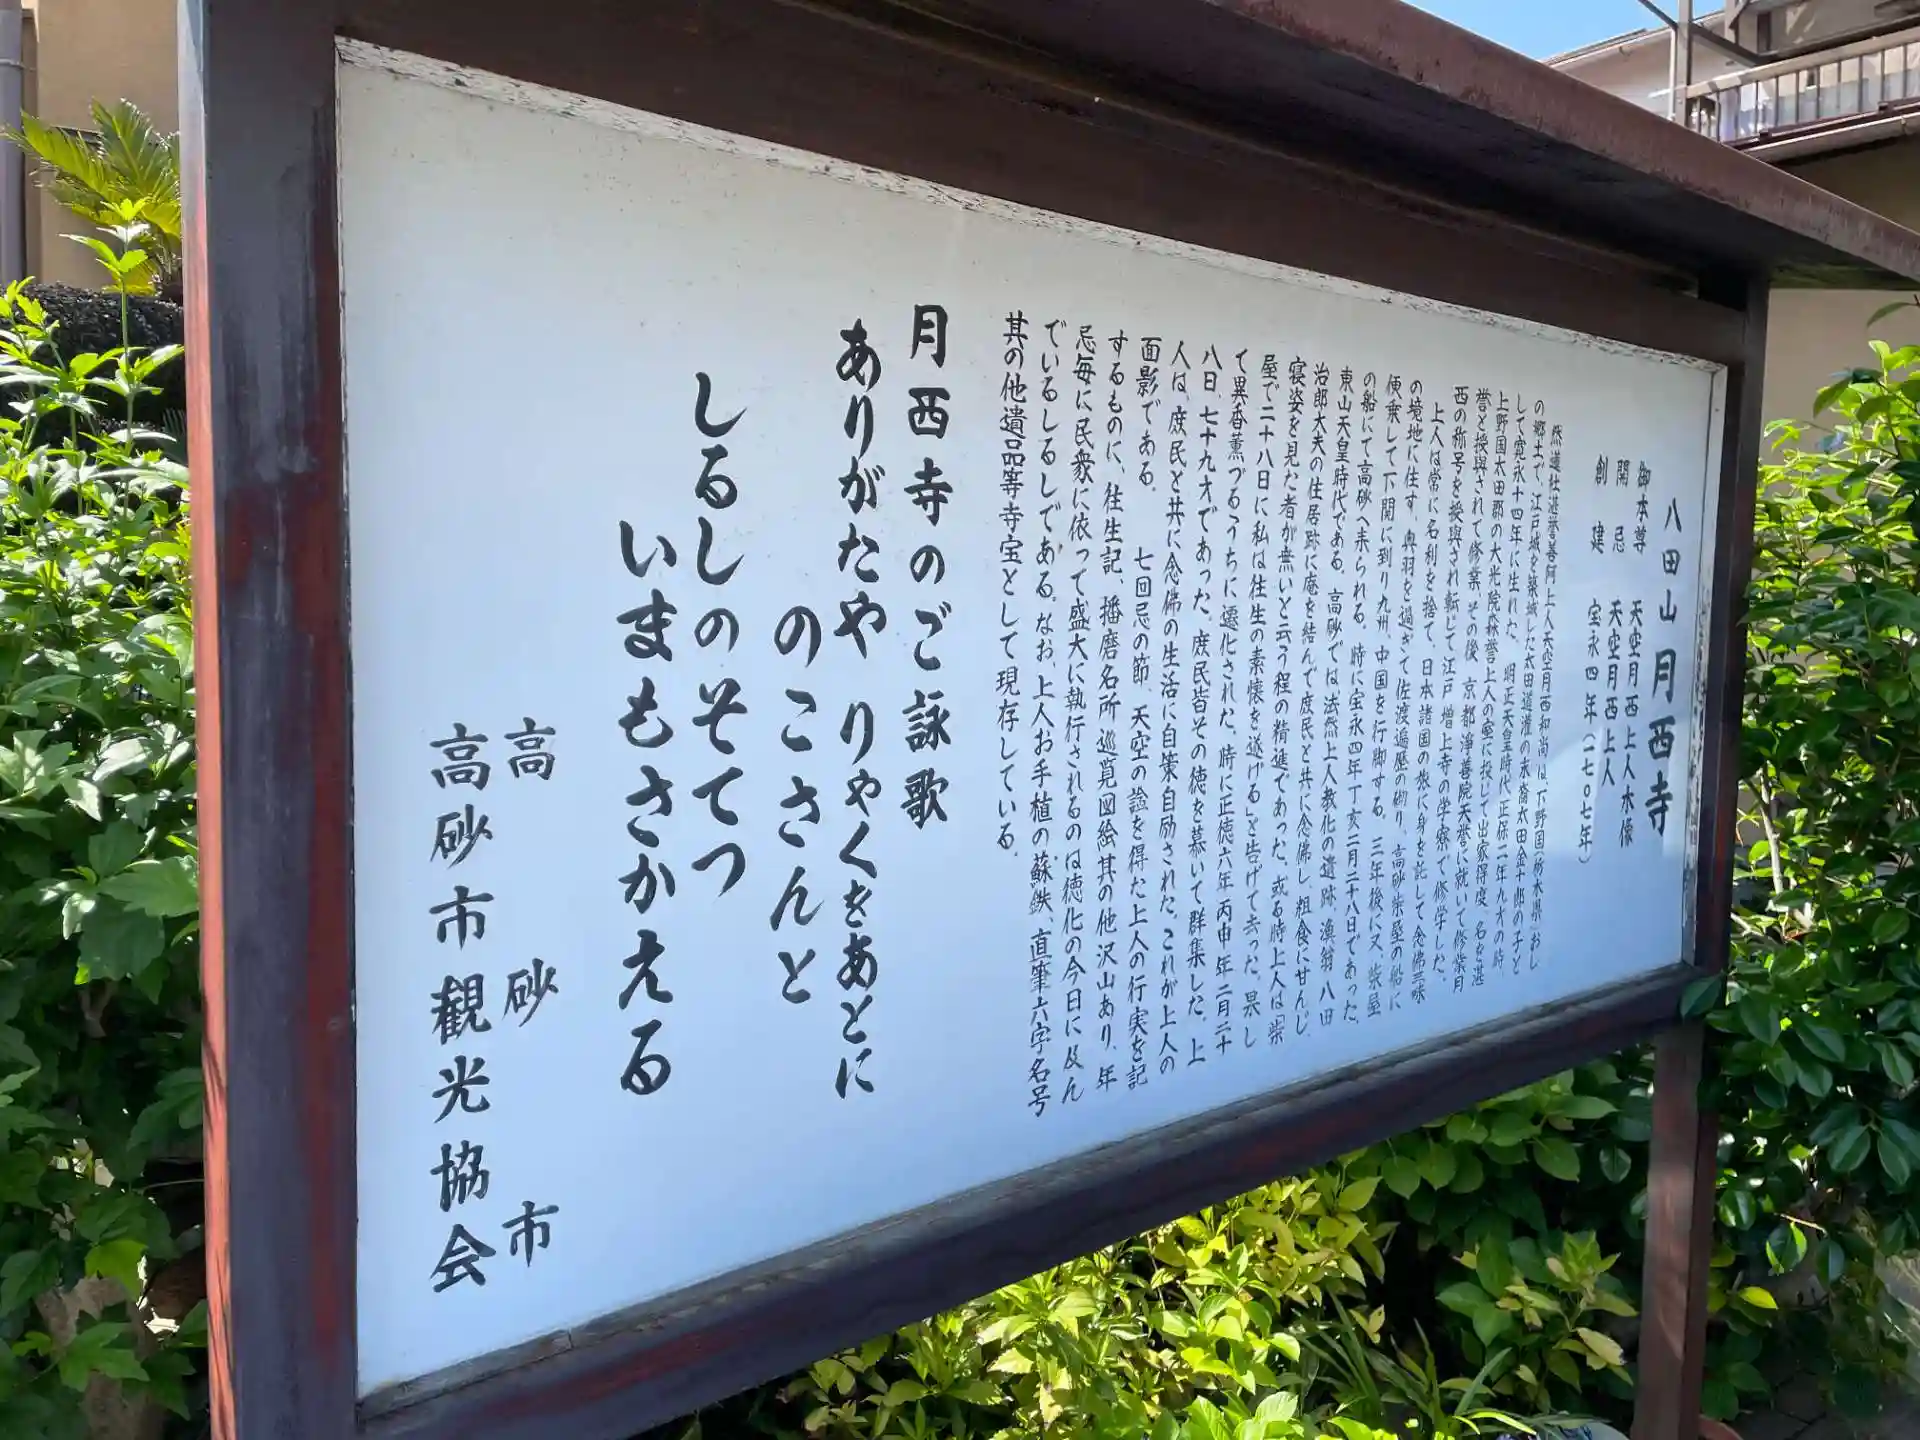 八田山月西寺
御本尊 天空月西上人木像
開忌 天空月西上人
創建 宝永四年(一七〇七年)
然蓮社湛誉善阿上人天空月西和尚は、下野国(栃木県)おし
の郷土で、江戸城を築城した太田道灌の末裔太田金十郎の子と
して寛永十四年に生れた。明正天皇時代 正保二年九才の時、
上野国太田郡の大光院森誉上人の室に投じて出家得度、名を湛
誉と授與されて修業、その後、京都浄善院天誉に就いて修業月
西の称号を授與され転じて江戸増上寺の学寮で修学した。
上人は常に名利を捨て、日本諸国の旅に身を託して念佛三昧
の境地に住す、奥羽を過ぎて佐渡遍歴の砌り、高砂柴屋の船に
便乗して下関に到り九州、中国を行脚する。三年後に又、柴屋
の船にて高砂へ来られる。時に宝永四年丁亥二月二十八日であった。
東山天皇時代である。高砂では法然上人教化の遺跡、漁翁八田
治郎大夫の住居跡に庵を結んで庶民と共に念佛し、粗食に甘んじ、
寝姿を見た者が無いと云う程の精進であった。或る時上人は「柴
屋で二十八日に私は往生の素懐を遂げる」と告げて去った。果し
て異香薫づるうちに遷化された。時に正徳六年丙申年二月二十
八日、七十九才であった。庶民皆その徳を慕いて群集した。上
人は、庶民と共に念佛の生活に自策自励された。これが上人の
面影である。 七回忌の節、天空の諡を得た上人の行実を記
するものに、往生記、播磨名所巡覧図絵其の他沢山あり、年
忌毎に民衆に依って盛大に執行されるのは徳化の今日に及ん
でいるしるしである。なお、上人お手植の蘇鉄、直筆六字名号
其の他遺品等寺宝として現存している。
月西寺のご詠歌
ありがたや りやくをあとに
のこさんと
しるしのそてつ
いまもさかえる
高砂市
高砂市観光協会